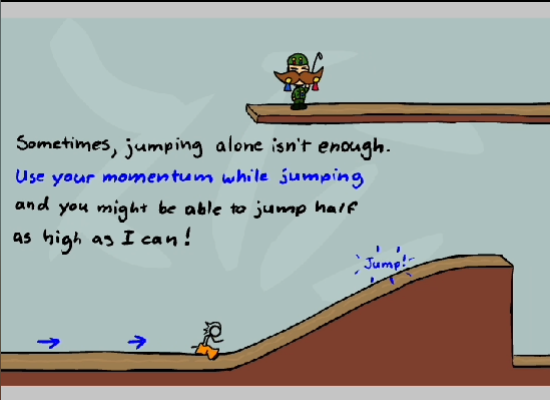 Sometimes, jumping alone isn't enough.
Use your momentum while jumping
and you might be able to jump half
as high as I can!
Jump!